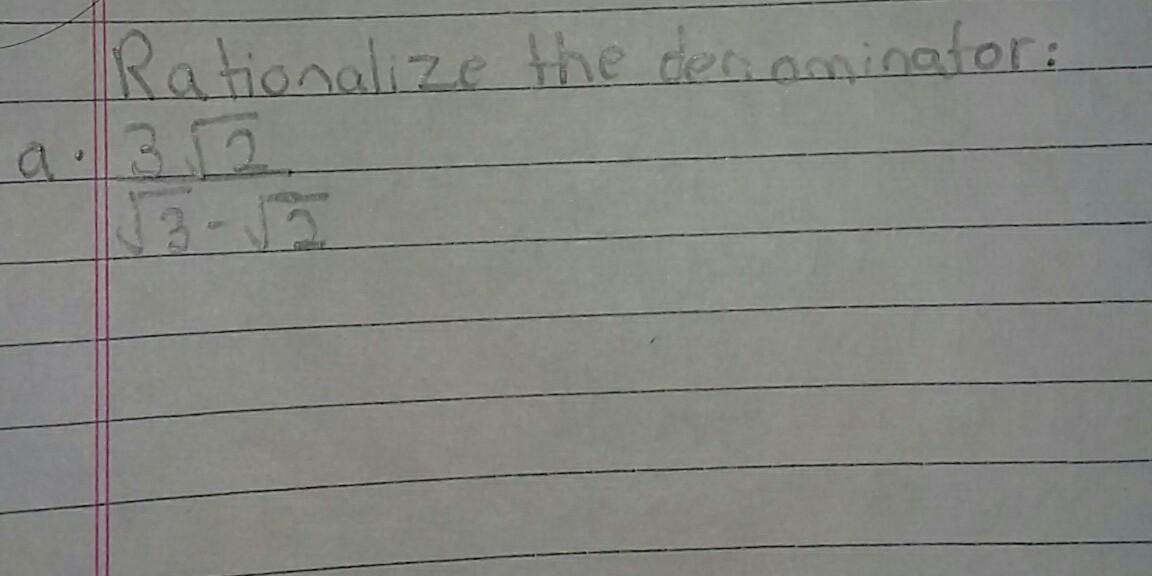 Rationalize the denominator:
a. 3√2
√3-√2